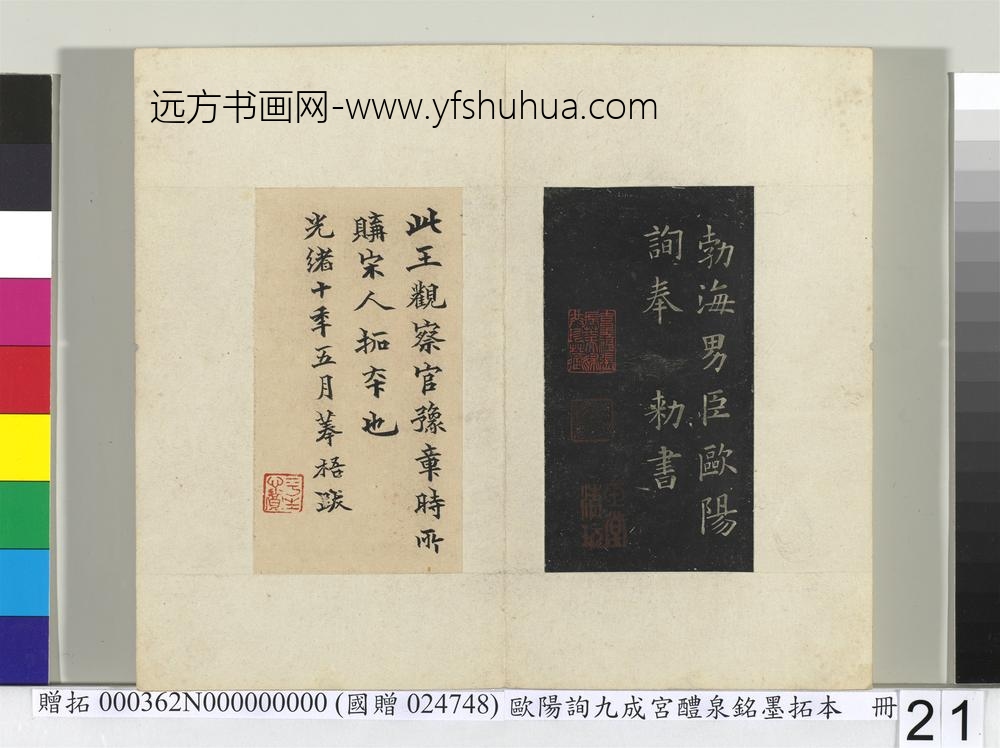 远方书画网-www.yfshuhua.com
勃海男臣歐陽
詢奉 勅書
此王觀察官豫章時所
購宋人拓夲也
光緒十年五月葊梧跋
贈拓 000362N000000000 (國贈 024748) 歐陽詢九成宮醴泉銘墨拓本 冊
21